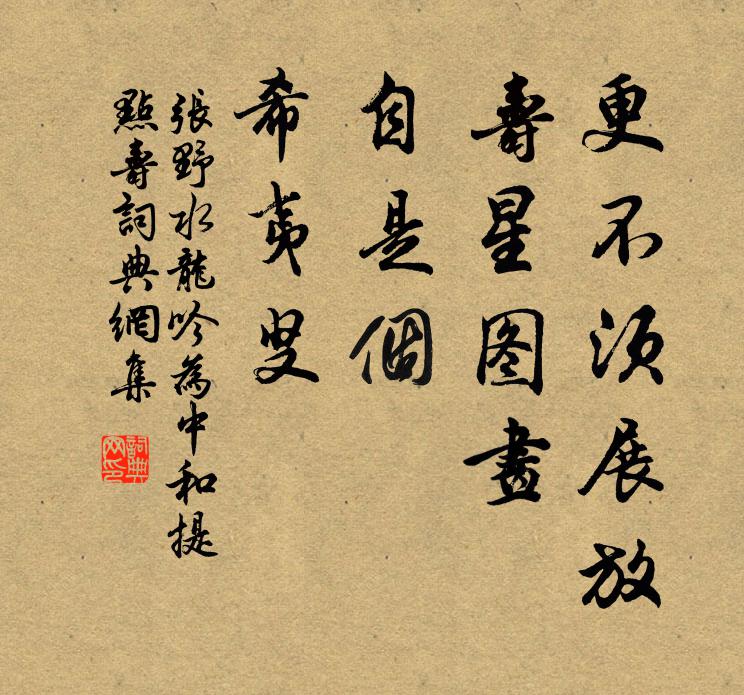 更不须展放
壽星图畫
自是個
希夷叟
張野水龍吟為中和提
點壽詞典網集
詞典网印